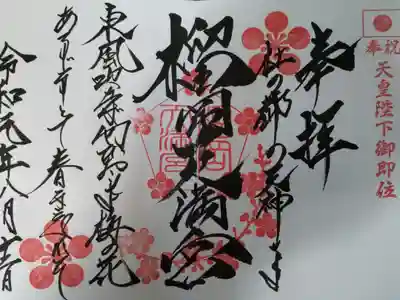 奉祝
天皇陛下御即位
奉拝
杜の都の天神さま
榴岡天満宮
東風吹かば匂ひおこせよ梅の花
あるじなしとて春な忘れそ
令和元年八月十五日